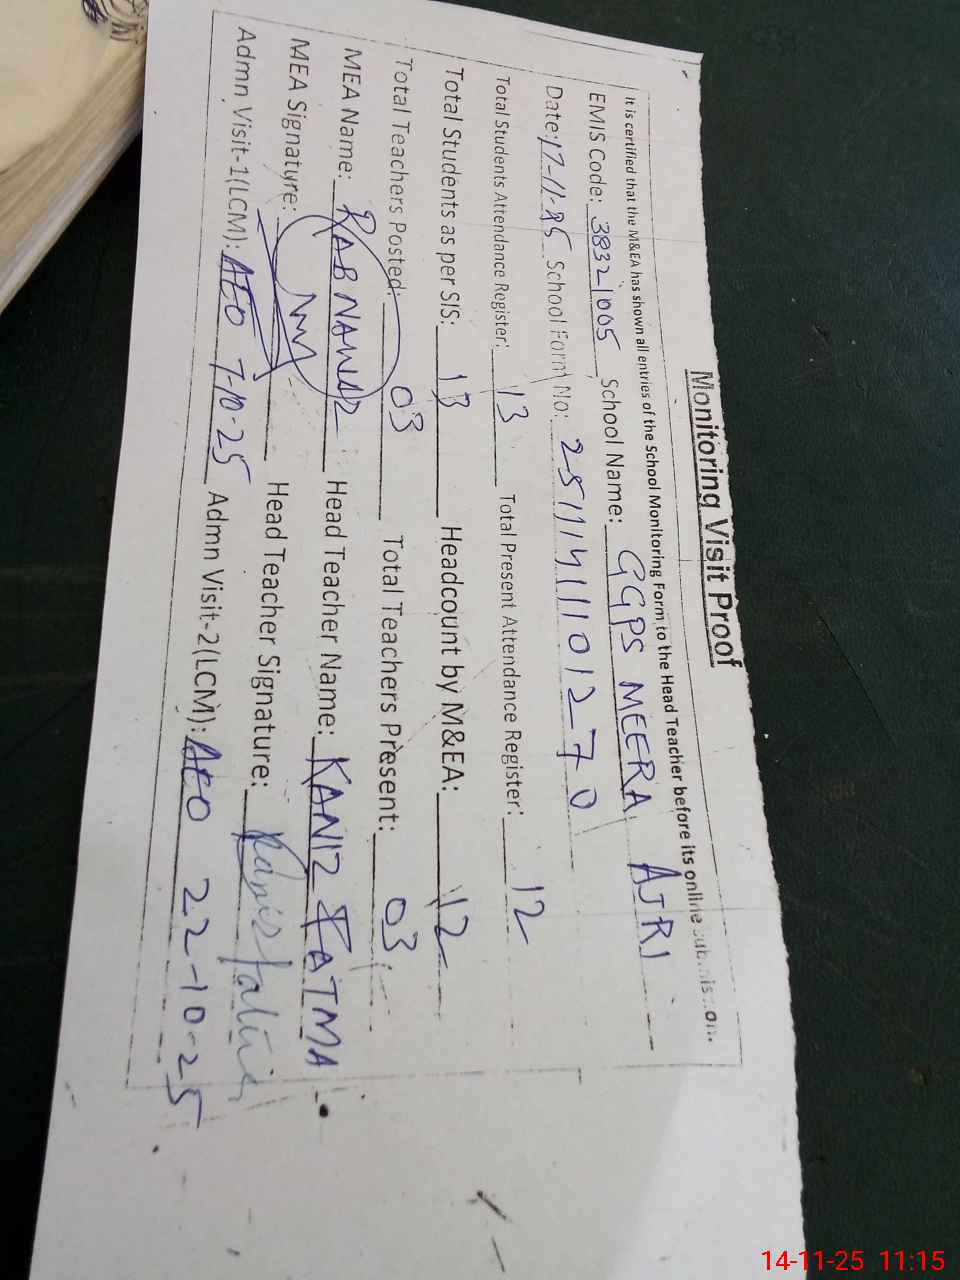 Monitoring Visit Proof
It is certified that the M&EA has shown all entries of the School Monitoring Form to the Head Teacher before its online submission.
EMIS Code: 38321005 School Name: GGPS MEERA AJRI
Date: 17-11-25 School Form No: 251114111101270
Total Students Attendance Register: 13 Total Present Attendance Register: 12
Total Students as per SIS: 13 Headcount by M&EA: 12
Total Teachers Posted: 03 Total Teachers Present: 03
MEA Name: RAB NAWAZ Head Teacher Name: KANIZ FATMA
MEA Signature: Head Teacher Signature:
Admn Visit-1(LCM): AEO 7-10-25 Admn Visit-2(LCM): AEO 22-10-25
14-11-25 11:15